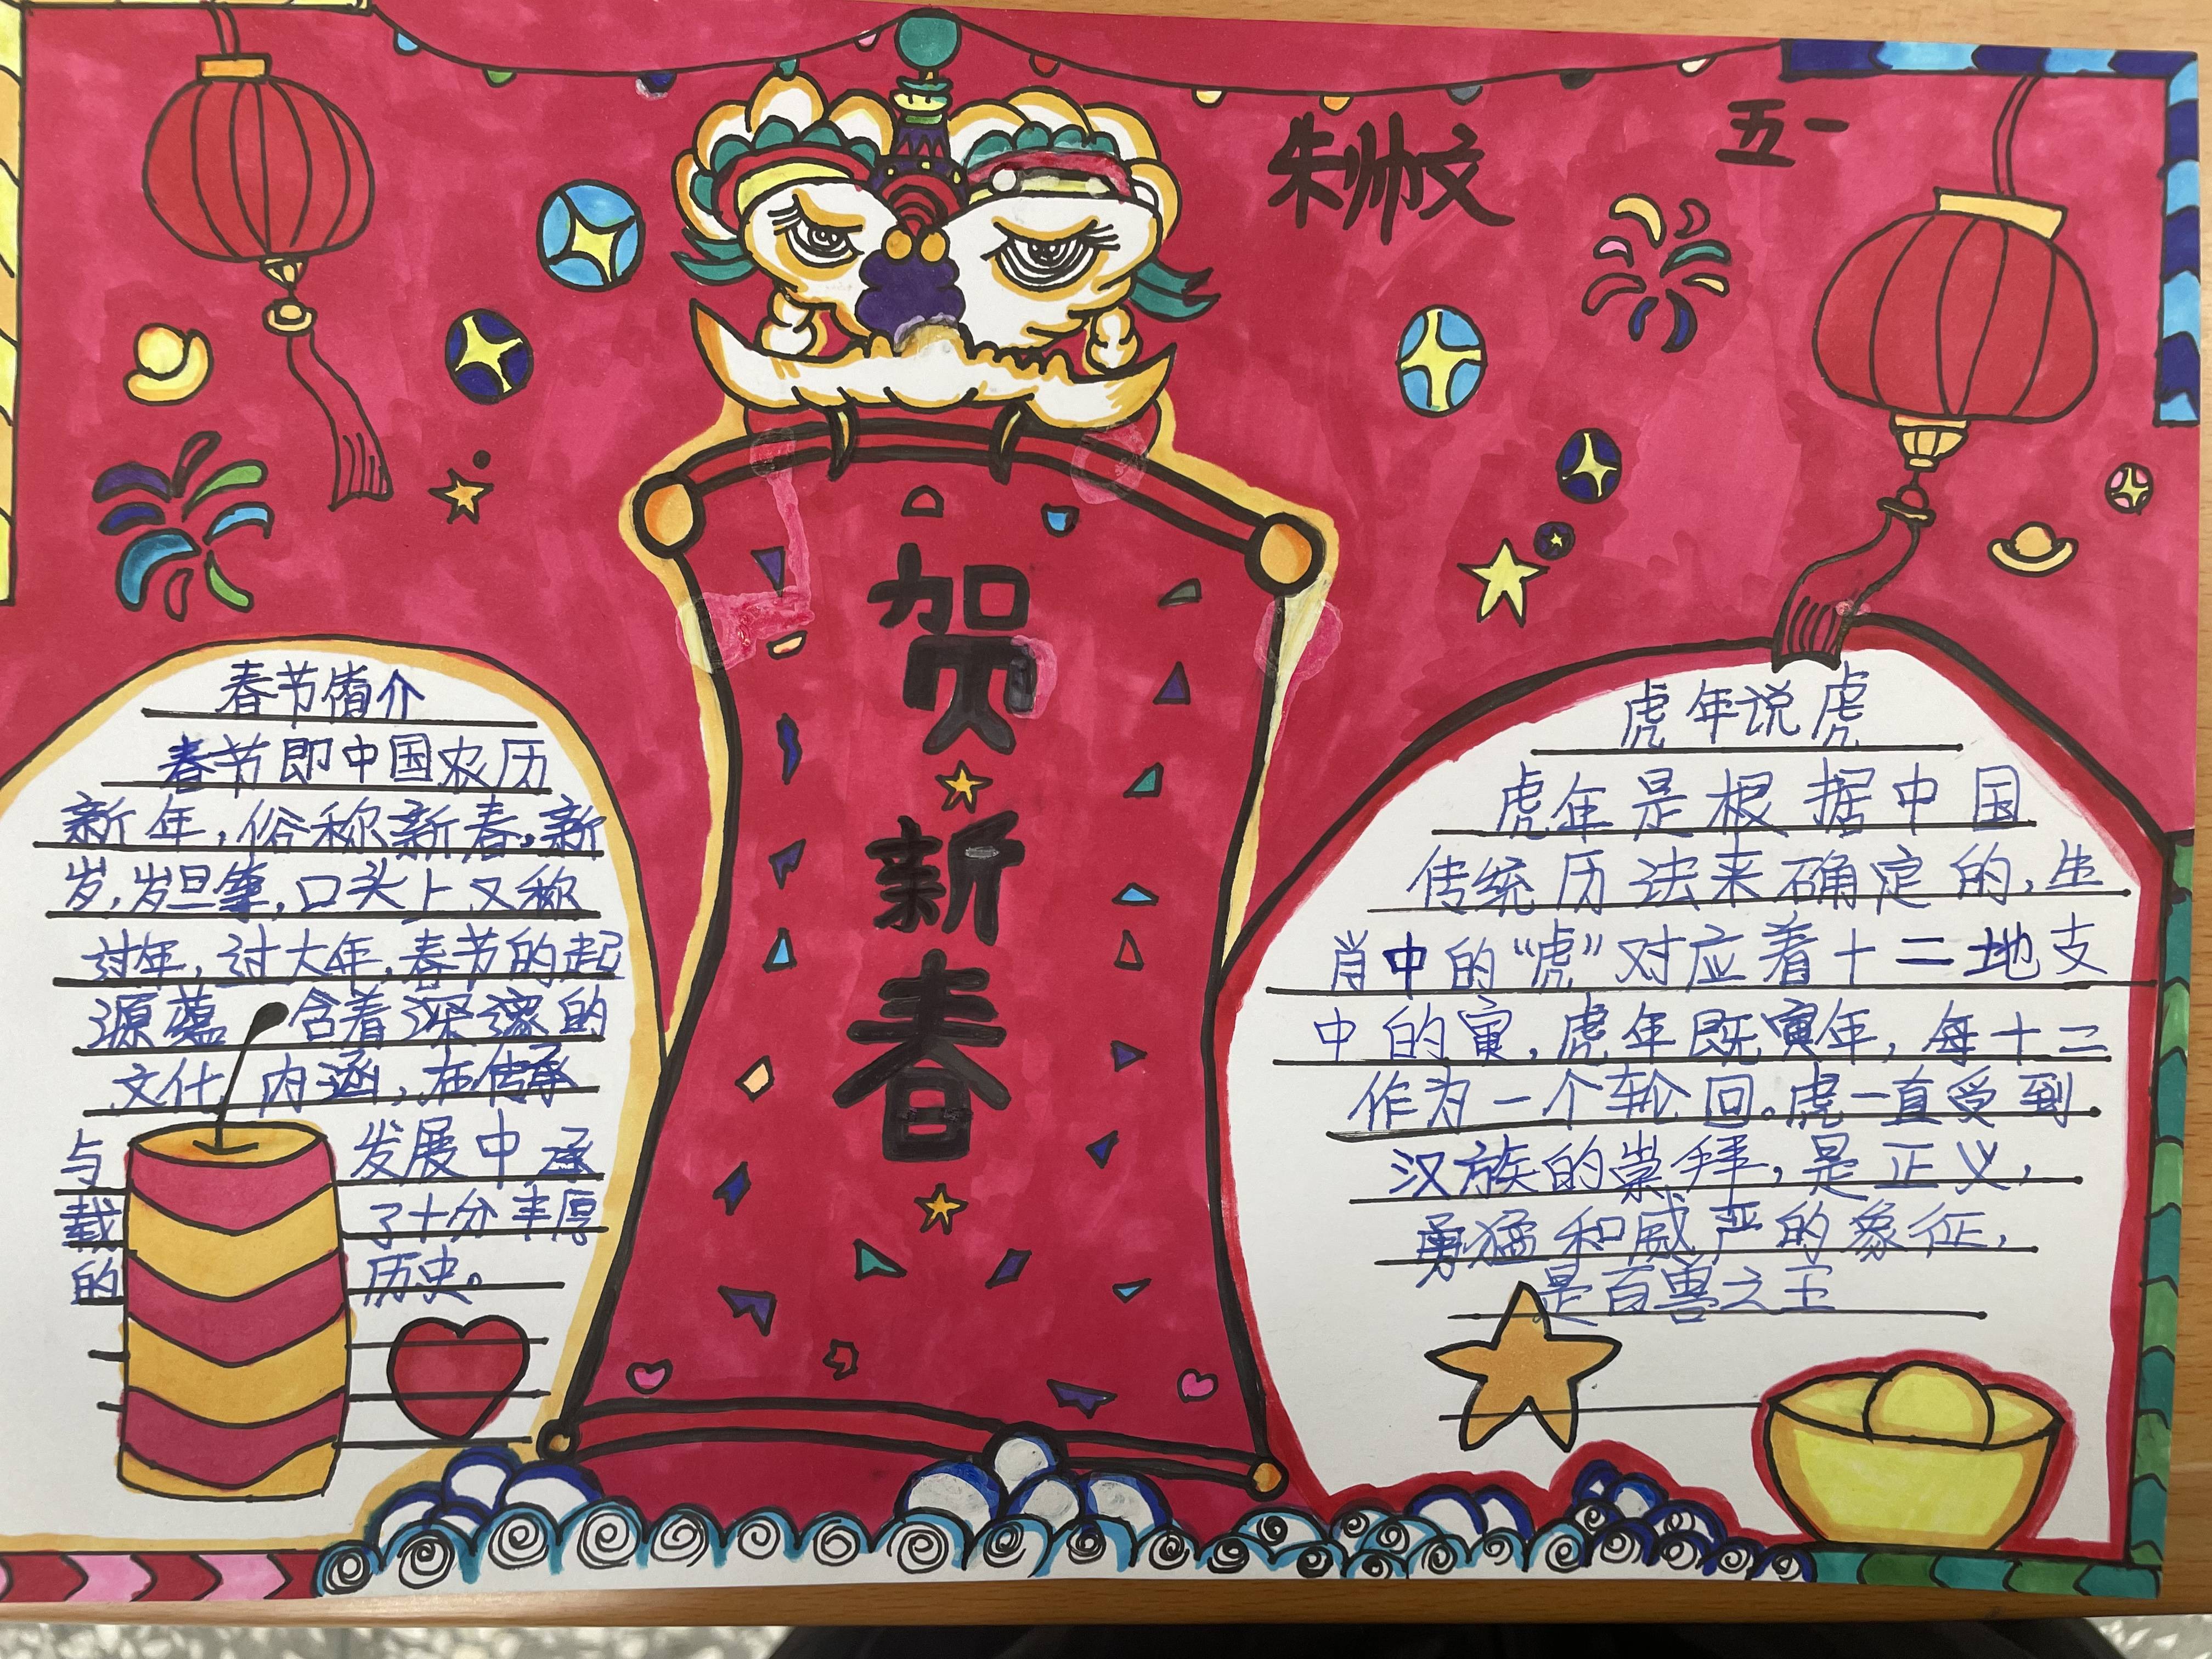 朱帅文
五一
贺
新
春
春节简介
春节即中国农历
新年,俗称新春,新
岁,岁旦等,口头上又称
过年,过大年,春节的起
源蕴 含着深邃的
文化 内涵,在传承
与 发展中承
载 了十分丰厚
的 历史。
虎年说虎
虎年是根据中国
传统历法来确定的,生
肖中的“虎”对应着十二地支
中的寅,虎年既寅年,每十二
作为一个轮回。虎一直受到
汉族的崇拜,是正义,
勇猛和威严的象征,
是百兽之王